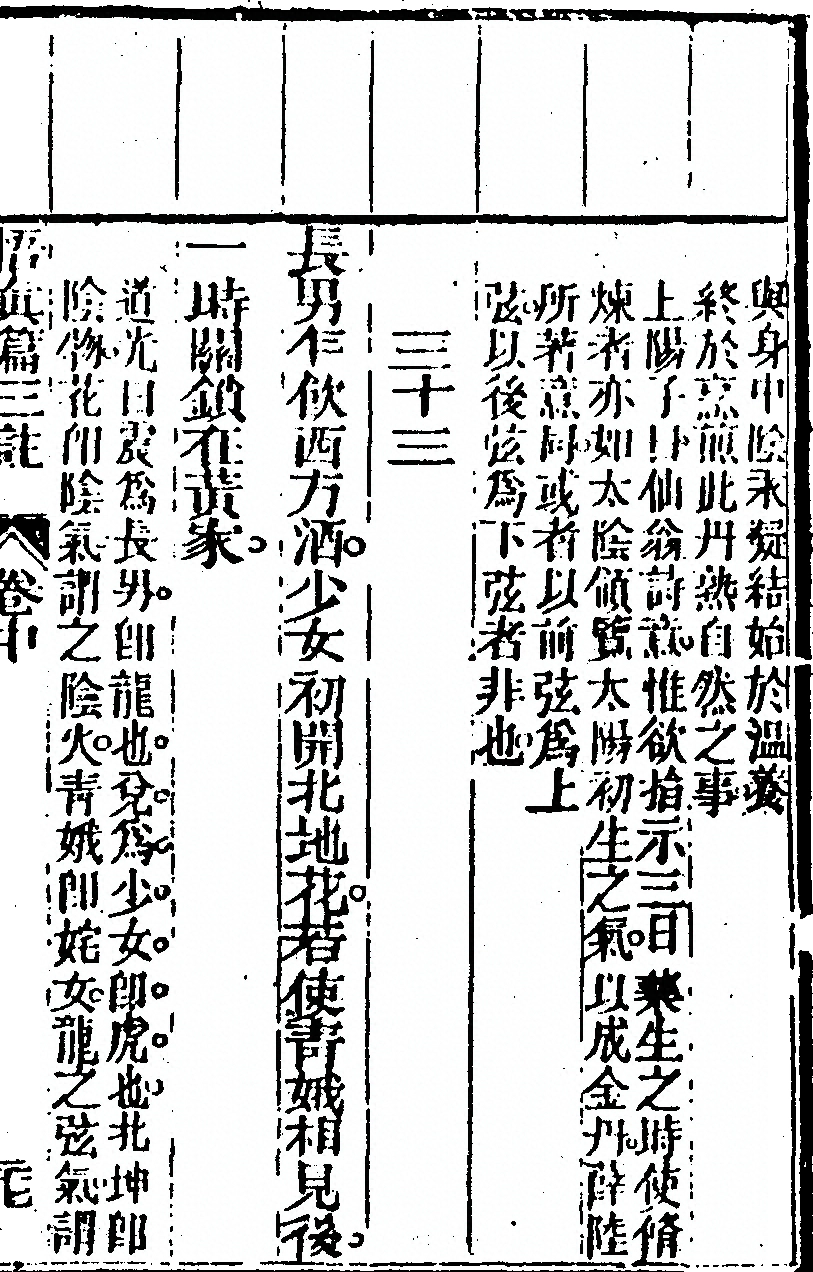 與身中陰汞凝結始於溫養
終於烹煎此丹熟自然之事
上陽子曰仙翁詩意惟欲指示三日藥生之時使脩
煉者亦如太陰傾覽太陽初生之氣以成金丹薛陸
所著意同或者以前弦爲上
弦以後弦爲下弦者非也
三十三
長男乍飲西方酒少女初開北地花若使青娥相見後
一時關鎖在黃家
道光曰震爲長男卽龍也兌爲少女卽虎也北坤卽
陰物花卽陰氣謂之陰火青娥卽姹女龍之弦氣謂
悟眞篇三註 卷中